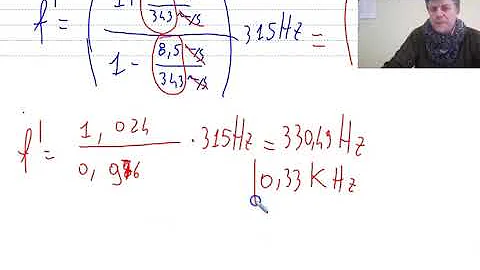 f' = ( 1 + 343 m/s / 1 - 8,5 m/s / 343 m/s ) 315Hz = (
f' = 1,024 / 0,976 · 315Hz = 330,49Hz
0,33 KHz